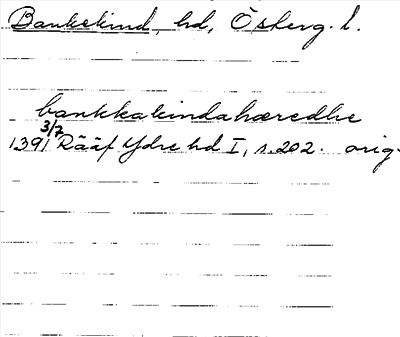 Bankekind, hd, Österg. l.
bankkakindahæredhe
1391 3/7 Rääf Ydre hd I, s. 202. orig.